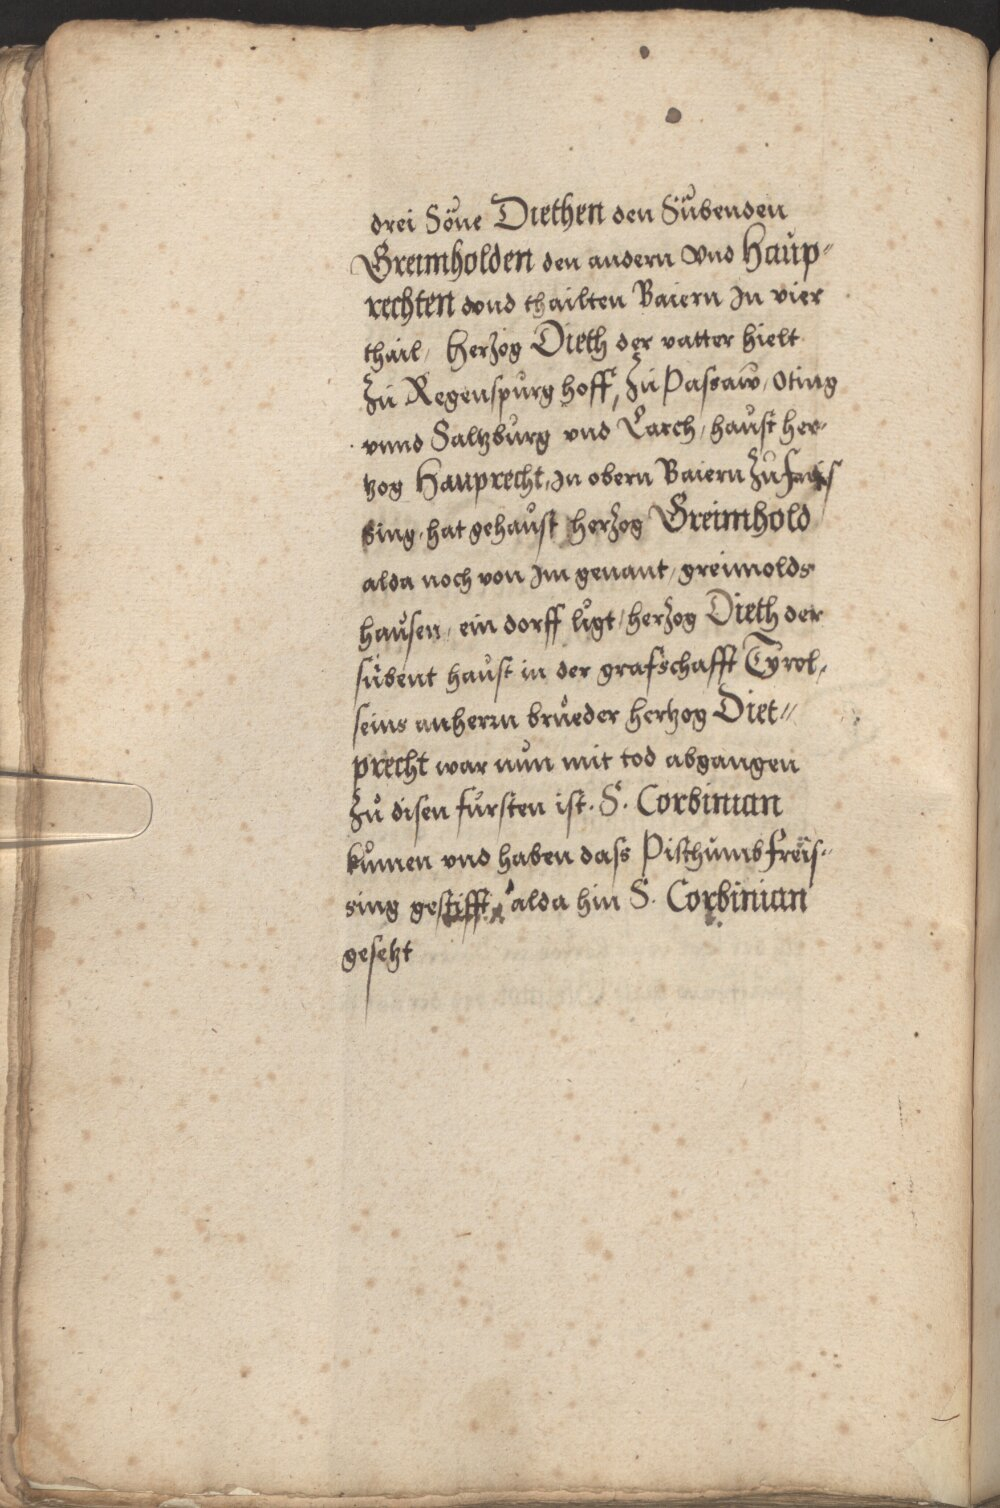 drei Söne Diethen den Sübenden
Greimholden den andern vnd Haup-
rechten vnd thailten Baiern In vier
thail, Herzog Dieth der vatter hielt
zu Regenspurg hoff, zu Passaw, Oting
vnnd Saltzburg vnd Larch, haust her-
tzog Hauprecht, In obern Baiern zu Freis
sing, hat gehaust herzog Greimhold
alda noch von Im genant, greimolds
hausen, ein dorff ligt, herzog Dieth der
sübent haust in der grafschafft Tyrol,
seins anherrn brueder hertzog Diet-
precht war nun mit tod abgangen
zu disen fürsten ist S. Corbinian
kumen vnd haben dass Pisthumb Freis-
sing gestifft, alda hin S. Corbinian
gesetzt